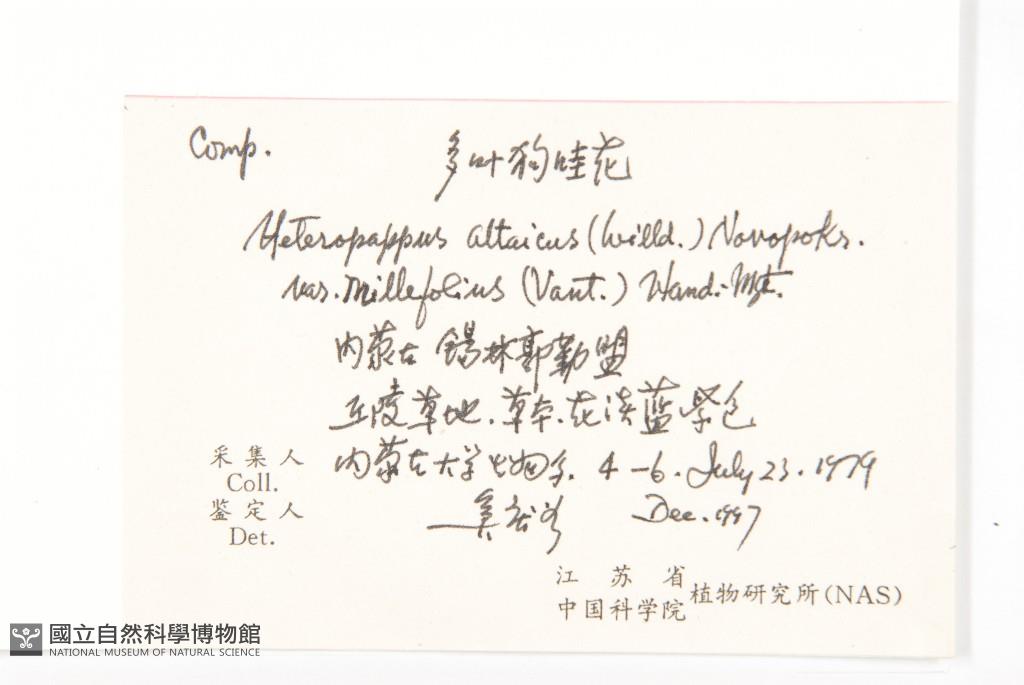 Comp. 多叶狗哇花
Heteropappus altaicus (Willd.) Novopokr.
var. millefolius (Vant.) Hand.-Mzt.
内蒙古 锡林郭勒盟
丘陵草地.草本.花淡蓝紫色
采集人 内蒙古大学生物系. 4-6. July 23. 1979
Coll.
鉴定人 Dec. 1997
Det.
江苏省
中国科学院植物研究所(NAS)
國立自然科學博物館
NATIONAL MUSEUM OF NATURAL SCIENCE